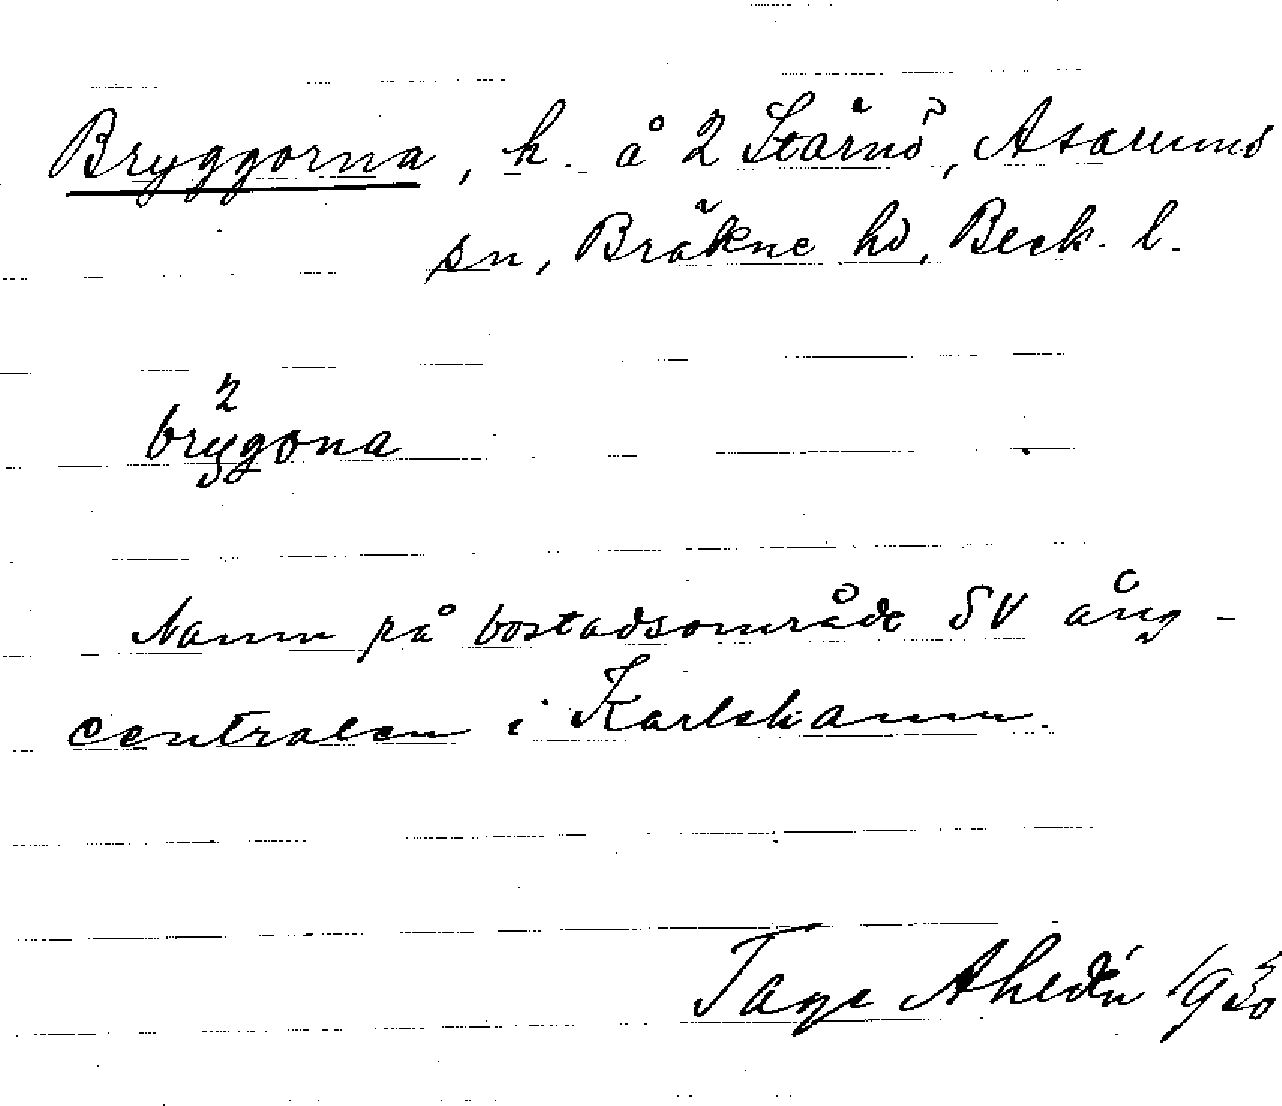 Bryggorna, h. å 2 Stärnö, Asarums
sn, Bräkne hd, Bleck. l.
2
brygona
Namn på bostadsområde SV ång-
centralen i Karlshamn.
Tage Ahldén 1930